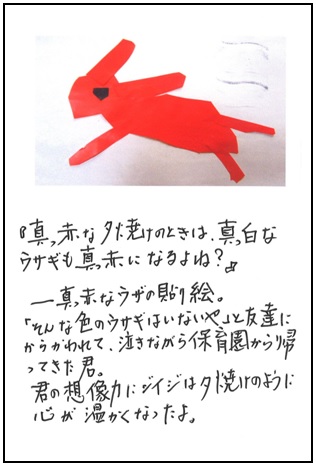 『真っ赤な夕焼けのときは、真っ白な
ウサギも真っ赤になるよね？』
―真っ赤なウサギの貼り絵。
「そんな色のウサギはいないや」と友達に
からかわれて、泣きながら保育園から帰
ってきた君。
君の想像力にジイジは夕焼けのように
心が温かくなったよ。